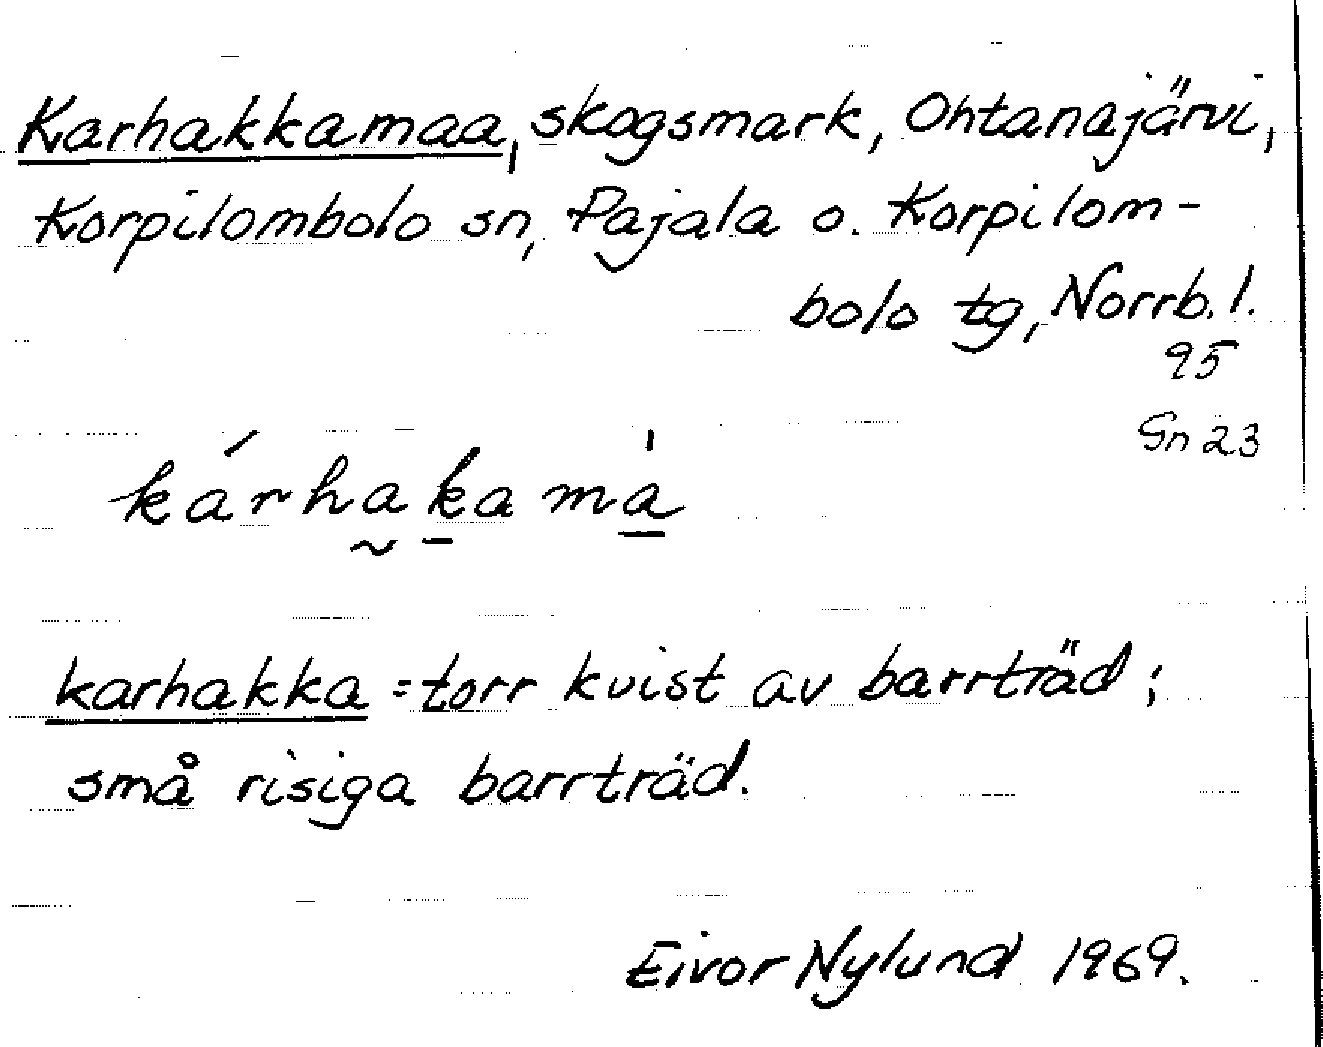 Karhakkamaa, skogsmark, Ohtanajärvi,
Korpilombolo sn, Pajala o. Korpilom-
bolo tg, Norrb. l.
95
Gn 23
kárhakamà
karhakka = torr kvist av barrträd;
små risiga barrträd.
Eivor Nylund 1969.